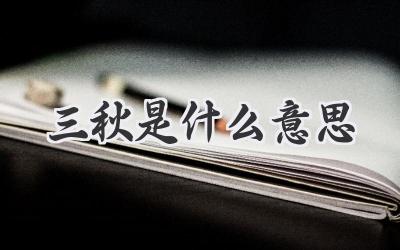 三秋是什么意思